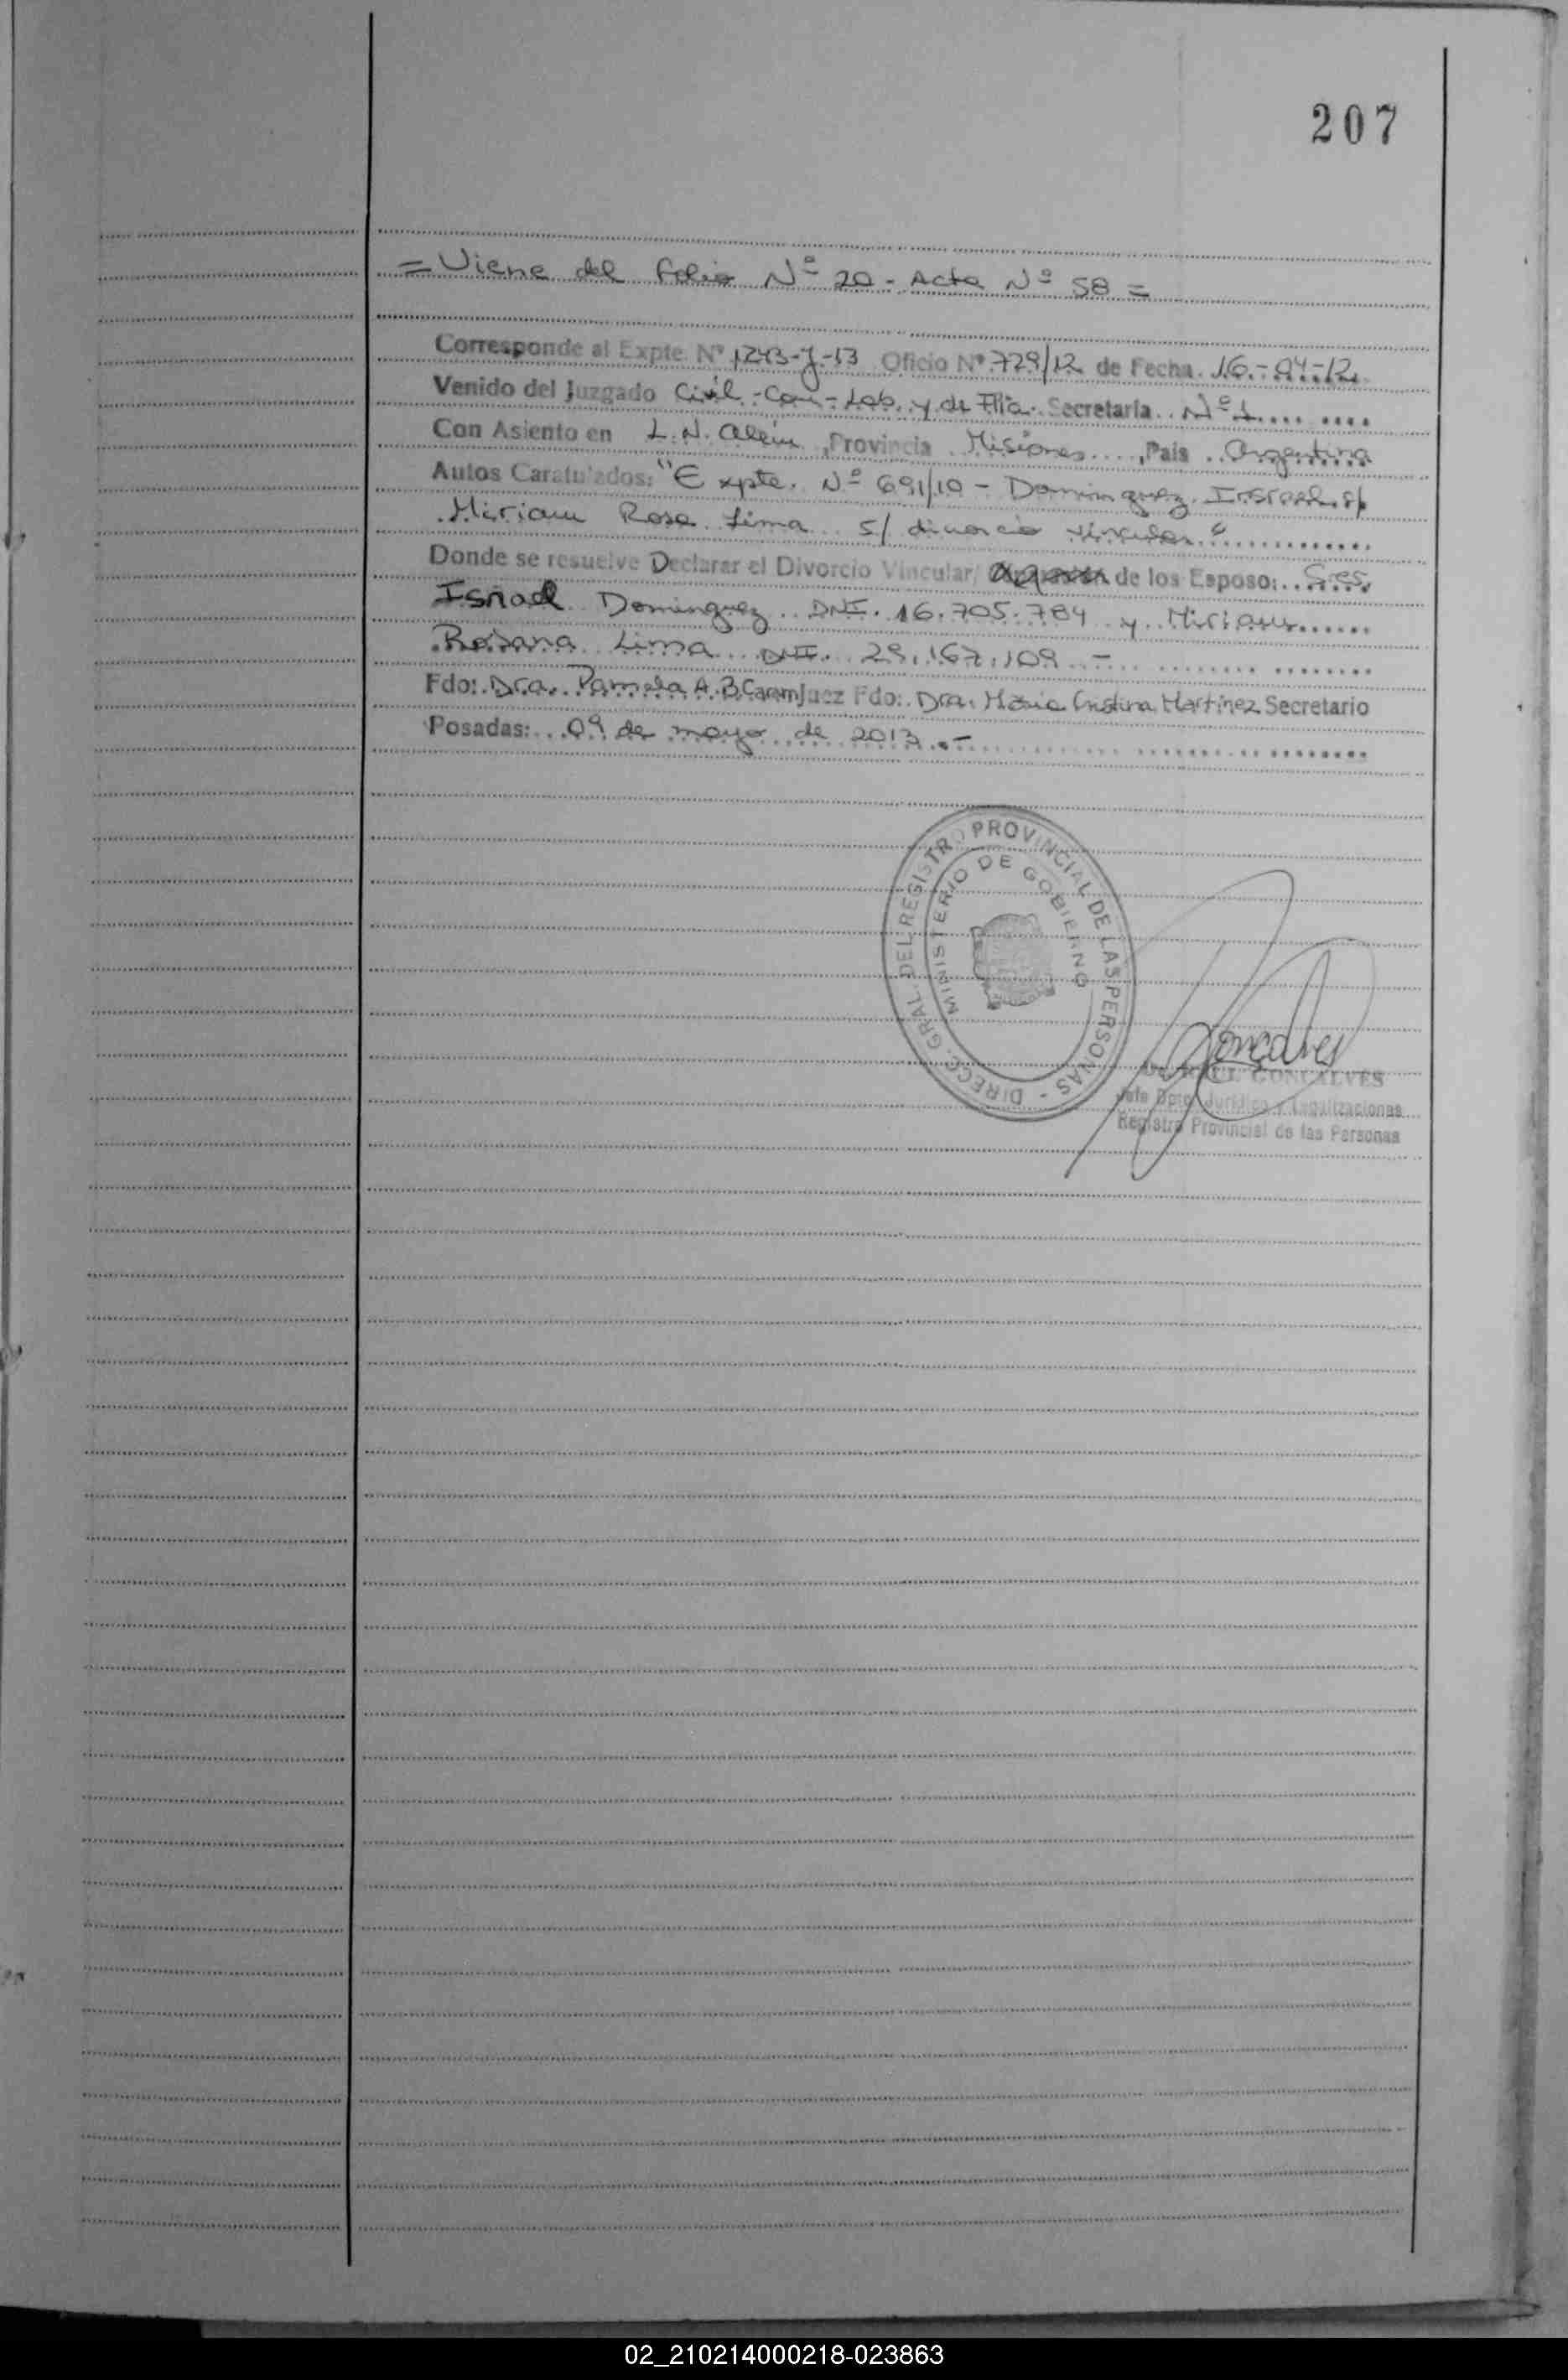 207
= Viene del folio Nº 20 - Acta Nº 58 =
Corresponde al Expte. Nº 1243-J-13 Oficio Nº 729/12 de Fecha 16-04-12
Venido del Juzgado Civil-Com-Lab. y de Flia. Secretaria Nº 1
Con Asiento en L.N. Alem, Provincia Misiones, Pais Argentina
Autos Caratulados: "Expte. Nº 691/10 - Dominguez
Miriam Rosa Lima s/ divorcio vincular"
Donde se resuelve Declarar el Divorcio Vincular/ de los Esposo: Sres.
Dominguez DNI. 16.705.784 y Miriam
Rosana Lima DNI. 29.167.109.-
Fdo: Dra. Pamela A. B. Juez Fdo: Dra. Maria Cristina Martinez Secretario
Posadas: 09 de mayo de 2013.-
DIRECC. GRAL. DEL REGISTRO PROVINCIAL DE LAS PERSONAS -
MINISTERIO DE GOBIERNO
Goncalves
GONCALVES
Jefe Dpto. Jurídico y Legalizaciones
Registro Provincial de las Personas
02_210214000218-023863